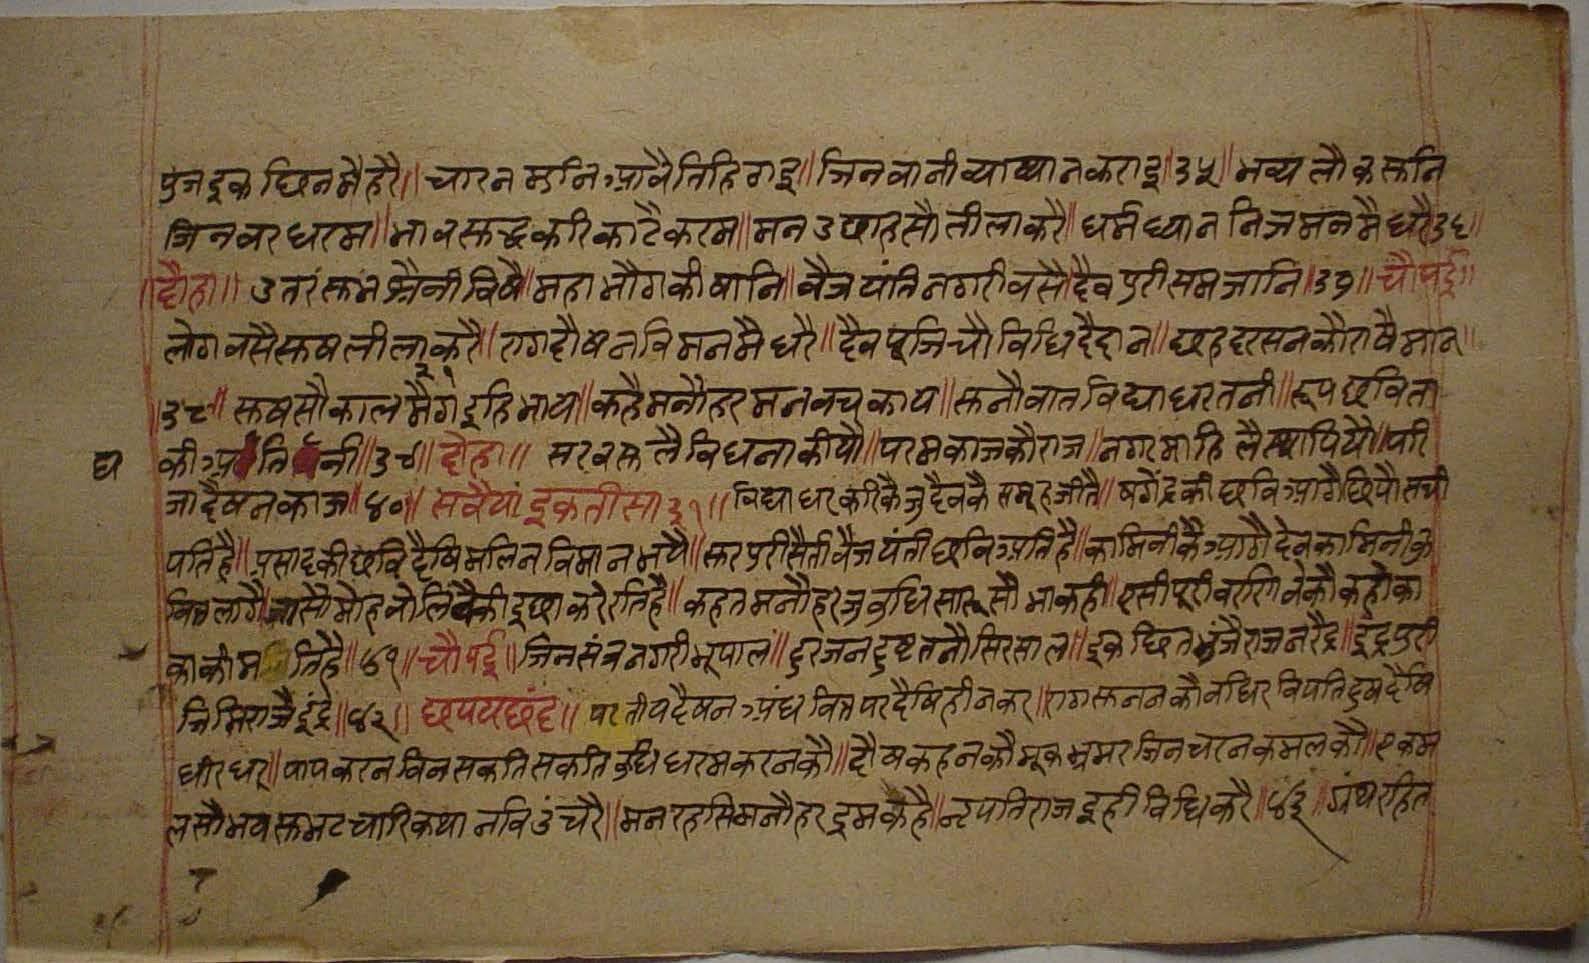 पुंज इक छिन मै हरै॥ चारन मुनि आवै तिहि ठाइ॥ जिनवानी व्याष्यान कराइ॥३५॥ भव्य लोक सुनि
जिनवर धरम॥ भाव सुद्ध करि काटै करम॥ मन उछाह सौ लीला करै॥ धर्मध्यान निज मन मै धरै॥३६॥
॥दोहा॥ उतर सुभ श्रैनी विषै॥ महा भोग की षानि॥ वैजयंति नगरी वसै॥ दैव पुरी सम जानि॥३७॥ चौपई॥
लोग वसै सुष लीला करै॥ राग दोष नवि मन मै धरै॥ दैव पूजि चौविधि दै दान॥ छह दरसन कौ राषै मान॥
॥३८॥ सुष सौ काल मैगे इहि भाय॥ कहै मनौहर मन वच काय॥ सुनौ वात विद्याधर तनी॥ रूप छवि ता
की अति नी॥३९॥ दोहा॥ सरवसु लै विधना कीयौ॥ परम काज कौ राज॥ नगर माहि लै स्थापियौ॥ परि
घ
जा दैषन काज॥४०॥ सवैयां इकतीसा ३१॥ विद्याधर करिकै जु दैव कै समूह जीतै॥ षगेंद्र की छवि आगै छिपौ सची
पति है॥ प्रसाद की छवि दैषि मलिन विमान भयै॥ सुर पुरी सैती वैजयंती छवि अति है॥ कामिनी कै आगै देव कामिनी कु
चित्त लागै॥ मोह इछा करे रति है॥ कहत मनौहर जु वुधि सारू सौ भा कही॥ एसी पूरी वरणिवे कौ कहो का
का की म ति है॥४१॥ चौपई॥ जिन संव नगरी भूपाल॥ दुरजन दुष्ट तनौ सिरसाल॥ इक छित भुंजै राज नरैद्र॥ इंद्र पुरी
जिमि राजै इंद्र॥४२॥ छपय छंद॥ पर तीय दैषन अंध वित्त पर दैषि हीन कर॥ राग सुनन कौ वधिर विपति दुष दैषि
धीर धर॥ पाप करन विन सकति सकति वुधि धरम करन कौ॥ दोष कहन कौ मूक भ्रमर जिन चरन कमल कौ॥ एकम
ल सौ भव सुभट चारि कथा नवि उंचरै॥ मन रहसि मनौहर इम कहै॥ नृपति राज इही विधि करै॥४३॥ ग्रंथ रहित